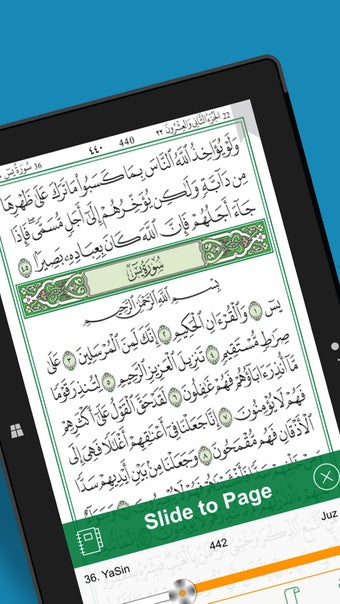 36 سُورَةُ يسٓ ٤٤٠ 440 ٢٢ الجُزْءُ الثَّانِي وَالعِشْرُونَ 22
وَلَوْ يُؤَاخِذُ ٱللَّهُ ٱلنَّاسَ بِمَا كَسَبُوا۟ مَا تَرَكَ عَلَىٰ ظَهْرِهَا
مِن دَآبَّةٍ وَلَٰكِن يُؤَخِّرُهُمْ إِلَىٰٓ أَجَلٍ مُّسَمًّى ۖ فَإِذَا
جَآءَ أَجَلُهُمْ فَإِنَّ ٱللَّهَ كَانَ بِعِبَادِهِۦ بَصِيرًۢا ٤٥
سُورَةُ يسٓ
بِسْمِ ٱللَّهِ ٱلرَّحْمَٰنِ ٱلرَّحِيمِ
يسٓ ١ وَٱلْقُرْءَانِ ٱلْحَكِيمِ ٢ إِنَّكَ لَمِنَ ٱلْمُرْسَلِينَ ٣ عَلَىٰ
صِرَٰطٍ مُّسْتَقِيمٍ ٤ تَنزِيلَ ٱلْعَزِيزِ ٱلرَّحِيمِ ٥ لِتُنذِرَ قَوْمًا
مَّآ أُنذِرَ ءَابَآؤُهُمْ فَهُمْ غَٰفِلُونَ ٦ لَقَدْ حَقَّ ٱلْقَوْلُ عَلَىٰٓ أَكْثَرِهِمْ
فَهُمْ لَا يُؤْمِنُونَ ٧ إِنَّا جَعَلْنَا فِىٓ أَعْنَٰقِهِمْ أَغْلَٰلًا فَهِىَ إِلَى
ٱلْأَذْقَانِ فَهُم مُّقْمَحُونَ ٨ وَجَعَلْنَا مِنۢ بَيْنِ أَيْدِيهِمْ سَدًّا
Slide to Page
36. YaSin 442 Juz